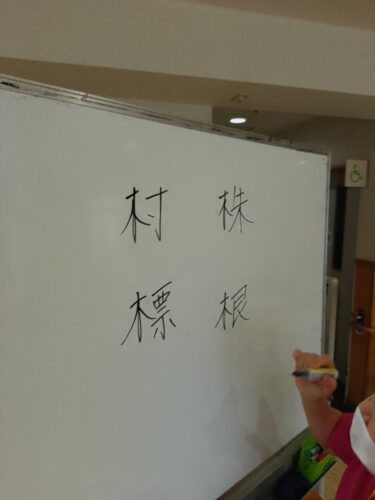 村 株
標 根